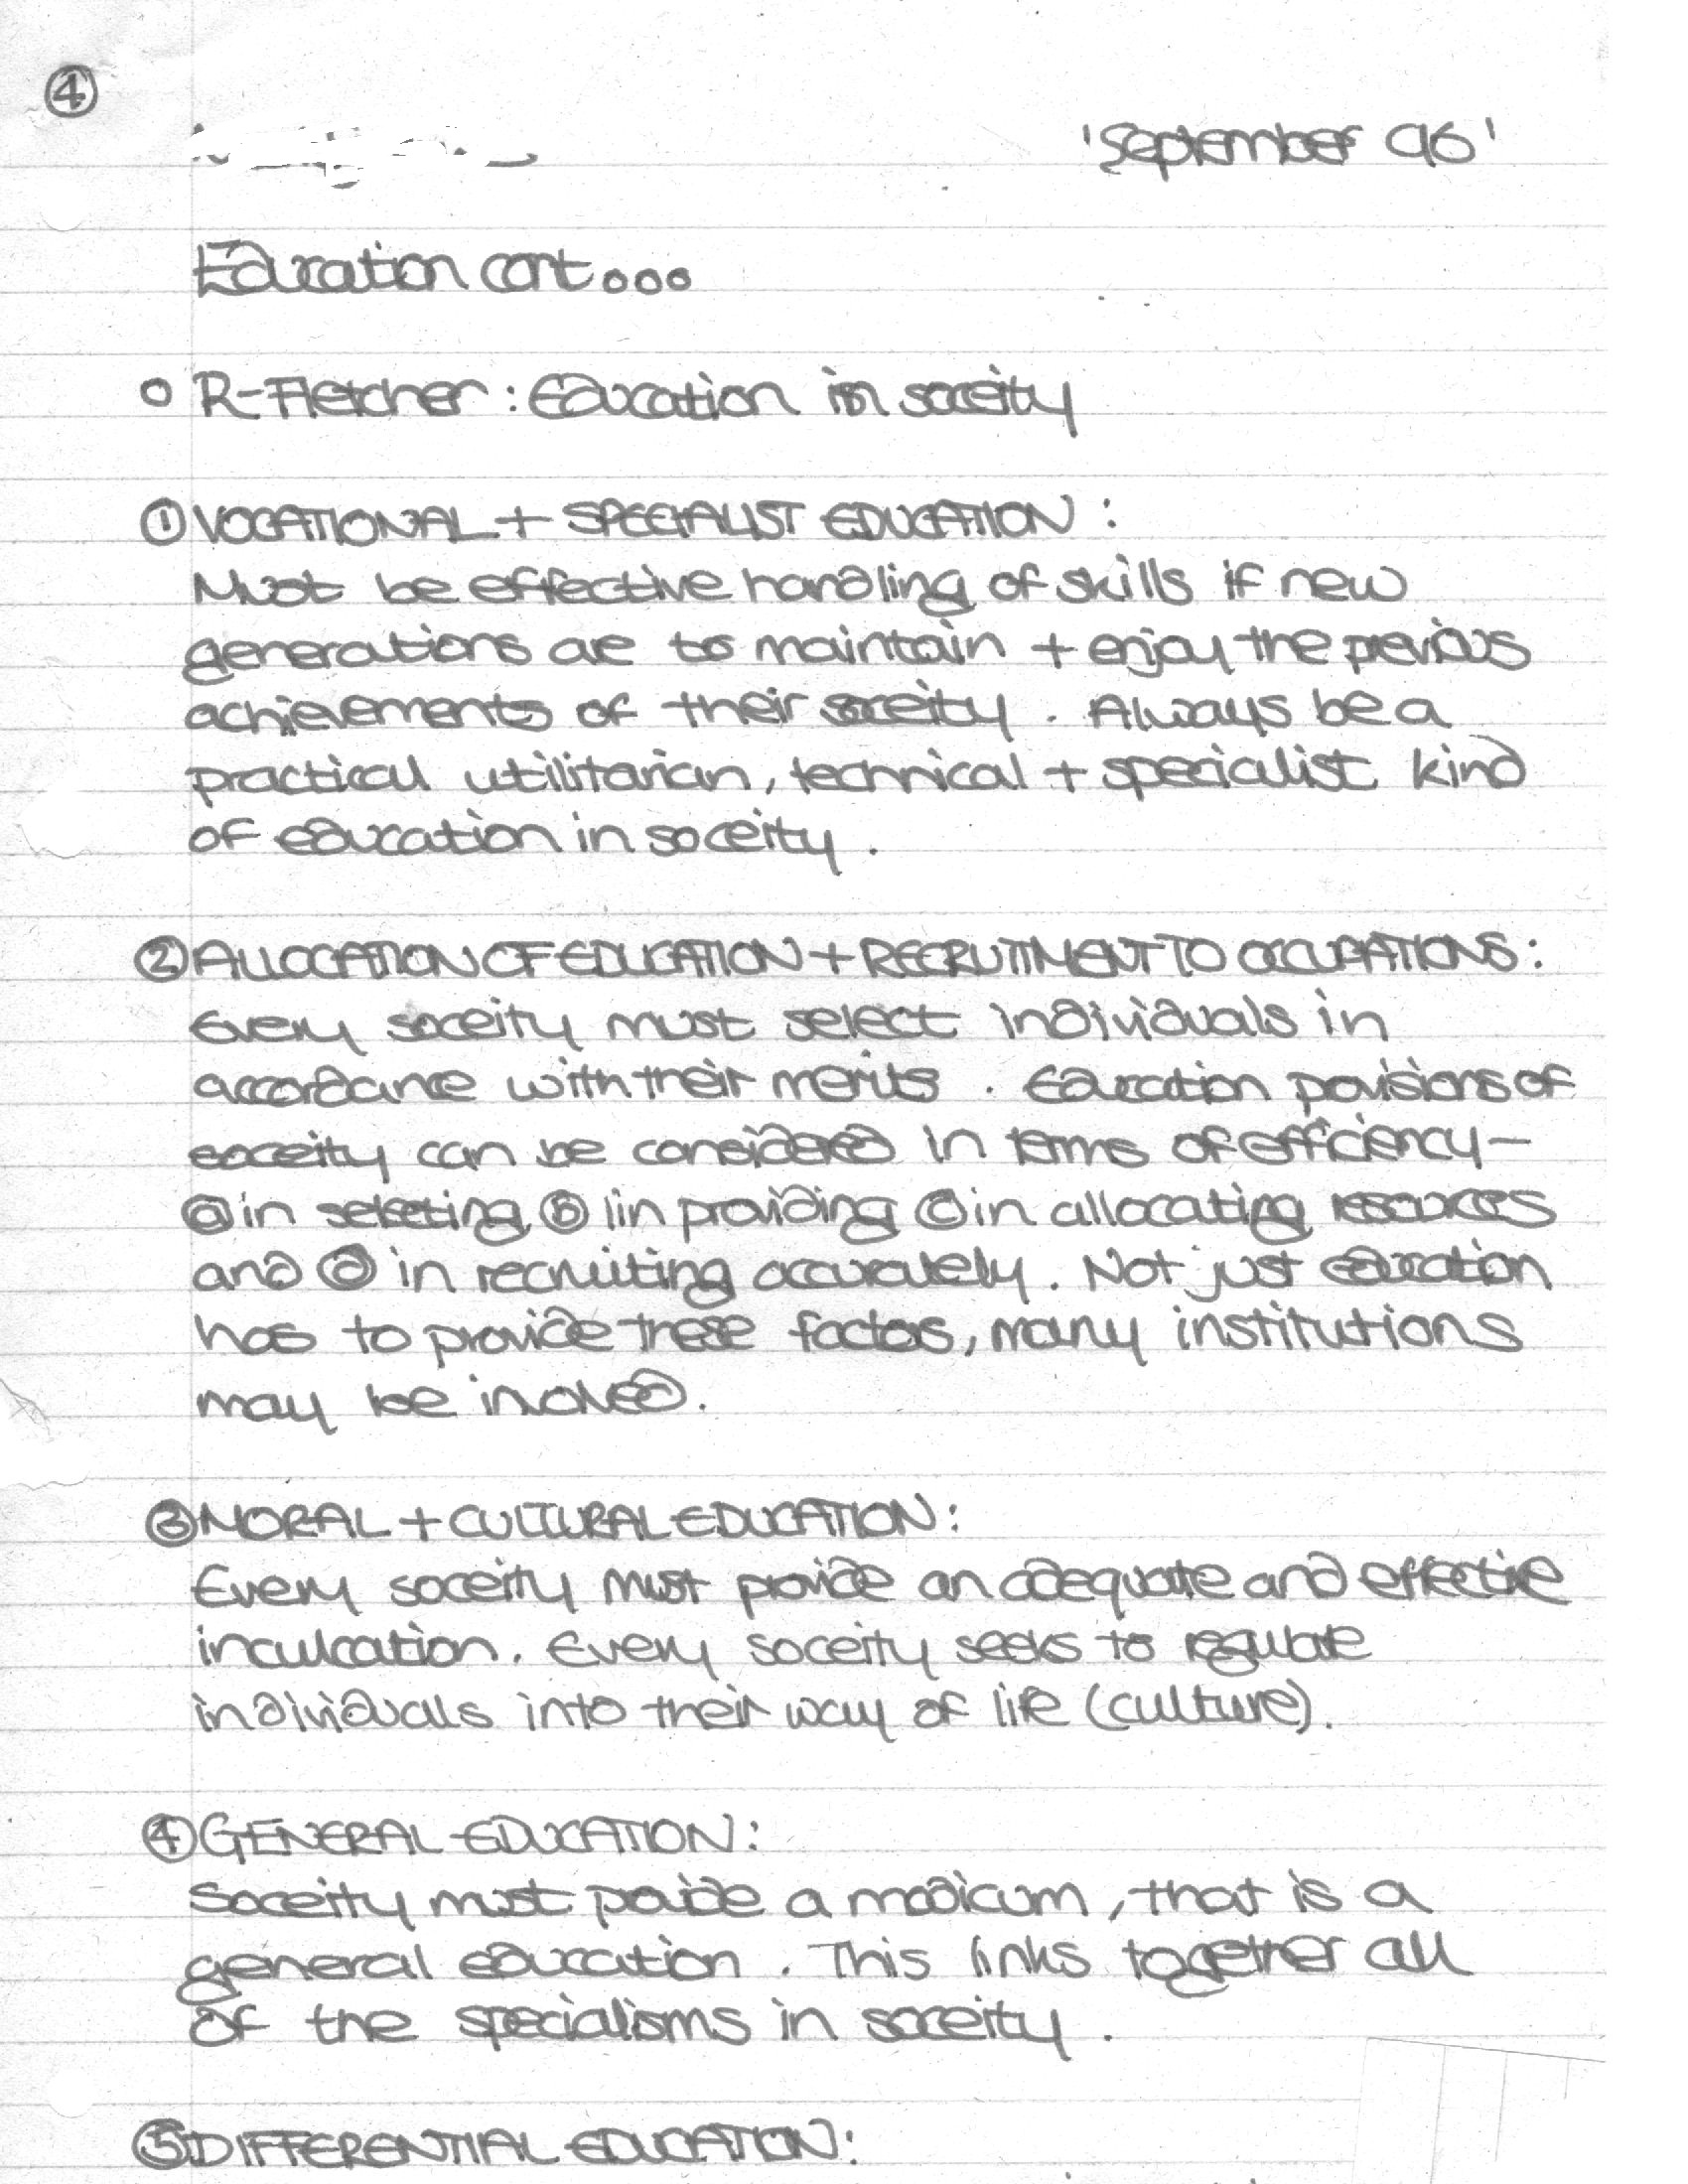 ④
'September 96'
Education cont...
o R-Fletcher : Education in soceity
① VOCATIONAL + SPECIALIST EDUCATION :
Must be effective handling of skills if new
generations are to maintain + enjoy the previous
achievements of their soceity . Always be a
practical utilitarian, technical + specialist kind
of education in soceity .
② ALLOCATION OF EDUCATION + RECRUITMENT TO OCCUPATIONS :
Every soceity must select individuals in
accordance with their merits . Education provisions of
soceity can be considered in terms of efficiency -
ⓐ in selecting ⓑ in providing ⓒ in allocating resources
and ⓓ in recruiting accurately. Not just education
has to provide these factors, many institutions
may be involved.
③ MORAL + CULTURAL EDUCATION :
Every soceity must provide an adequate and effective
inculcation. Every soceity seeks to regulate
individuals into their way of life (culture).
④ GENERAL EDUCATION :
Soceity must provide a modicum, that is a
general education . This links together all
of the specialisms in soceity .
⑤ DIFFERENTIAL EDUCATION :